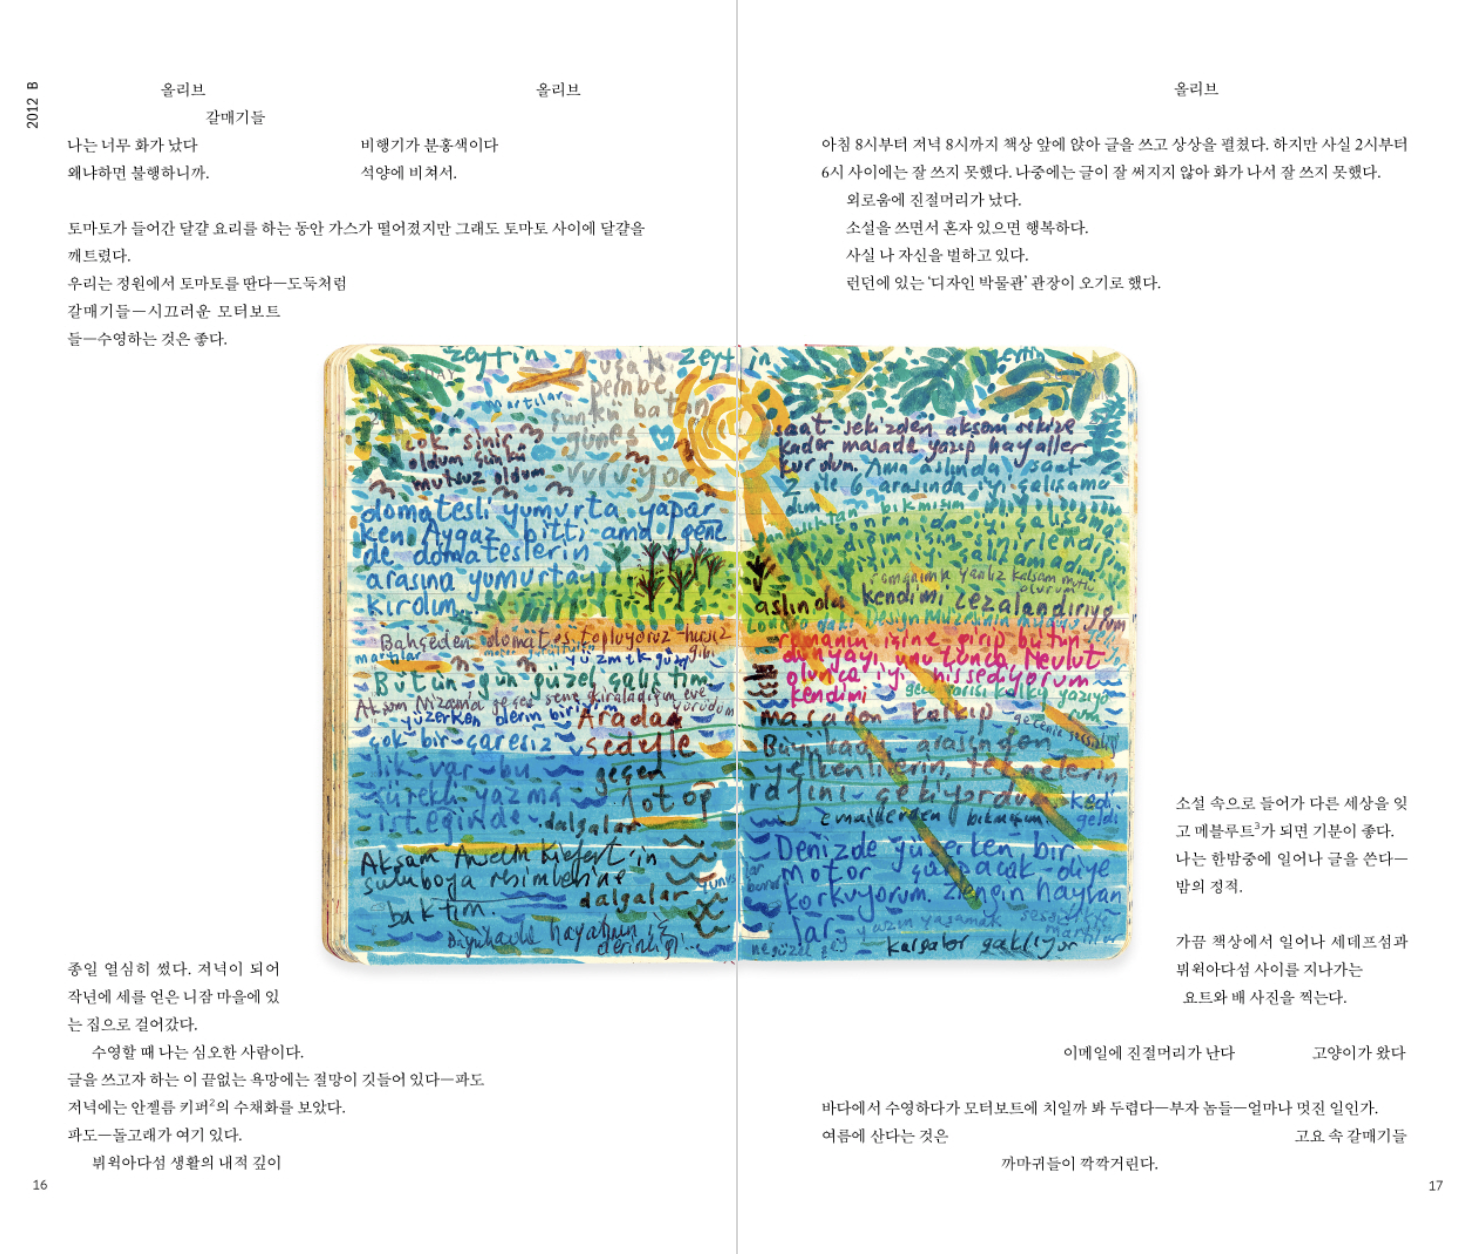 2012 B
올리브 올리브
갈매기들
나는 너무 화가 났다 비행기가 분홍색이다
왜냐하면 불행하니까. 석양에 비쳐서.
토마토가 들어간 달걀 요리를 하는 동안 가스가 떨어졌지만 그래도 토마토 사이에 달걀을
깨트렸다.
우리는 정원에서 토마토를 딴다—도둑처럼
갈매기들—시끄러운 모터보트
들—수영하는 것은 좋다.
zeytin
uçak
pembe
martılar
çünkü batan
güneş
vuruyor
çok sinir
oldum çünkü
mutsuz oldum
domatesli yumurta yapar
ken Aygaz bitti ama gene
de domateslerin
arasına yumurtayı
kırdım...
Bahçeden domates topluyoruz-hırsız
gibi
martılar
yüzmek güzel
Bütün gün güzel çalıştım
Akşam Nizam'a geçen sene kiraladığım eve
yürüdüm
yüzerken derin biriyim
çok bir çaresiz
lik var bu
sürekli yazma
isteğinde dalgalar
Aradan
Sedefle
geçen
Akşam Anselm Kiefer'in
suluboya resimlerine
baktım. dalgalar
yunus
Büyükada hayatının iç
derinliği...
종일 열심히 썼다. 저녁이 되어
작년에 세를 얻은 니잠 마을에 있
는 집으로 걸어갔다.
수영할 때 나는 심오한 사람이다.
글을 쓰고자 하는 이 끝없는 욕망에는 절망이 깃들어 있다—파도
저녁에는 안젤름 키퍼2의 수채화를 보았다.
파도—돌고래가 여기 있다.
뷔윅아다섬 생활의 내적 깊이
16
올리브
아침 8시부터 저녁 8시까지 책상 앞에 앉아 글을 쓰고 상상을 펼쳤다. 하지만 사실 2시부터
6시 사이에는 잘 쓰지 못했다. 나중에는 글이 잘 써지지 않아 화가 나서 잘 쓰지 못했다.
외로움에 진절머리가 났다.
소설을 쓰면서 혼자 있으면 행복하다.
사실 나 자신을 벌하고 있다.
런던에 있는 ‘디자인 박물관’ 관장이 오기로 했다.
zeytin
saat sekizden akşam sekize
kadar masada yazıp hayaller
kurdum. Ama aslında saat
2 ile 6 arasında iyi çalışama
dım
sonra da iyi çalışama
dığım için sinirlendiğim
için iyi çalışamadım.
romanımla yalnız kalsam mutlu
olurum
aslında kendimi cezalandırıyorum
Londra'daki Design Müzesinin müdürü
romanın içine girip bütün
dünyayı unutunca Mevlut
olunca iyi hissediyorum
kendimi
gece yarısı kalkıp yazıyo
rum
gecenin sessizliği
masadan kalkıp
Büyükada arasından
yelkenlilerin, teknelerin
kedi
geldi
emaillerden bıkmışım.
Denizde yüzerken bir
motor çarpacak diye
korkuyorum. zengin hayvan
lar
yazın yaşamak
ne güzel şey
martılar
kargalar gaklıyor
소설 속으로 들어가 다른 세상을 잊
고 메블루트3가 되면 기분이 좋다.
나는 한밤중에 일어나 글을 쓴다—
밤의 정적.
가끔 책상에서 일어나 세데프섬과
뷔윅아다섬 사이를 지나가는
요트와 배 사진을 찍는다.
이메일에 진절머리가 난다 고양이가 왔다
바다에서 수영하다가 모터보트에 치일까 봐 두렵다—부자 놈들—얼마나 멋진 일인가.
여름에 산다는 것은 고요 속 갈매기들
까마귀들이 깍깍거린다.
17